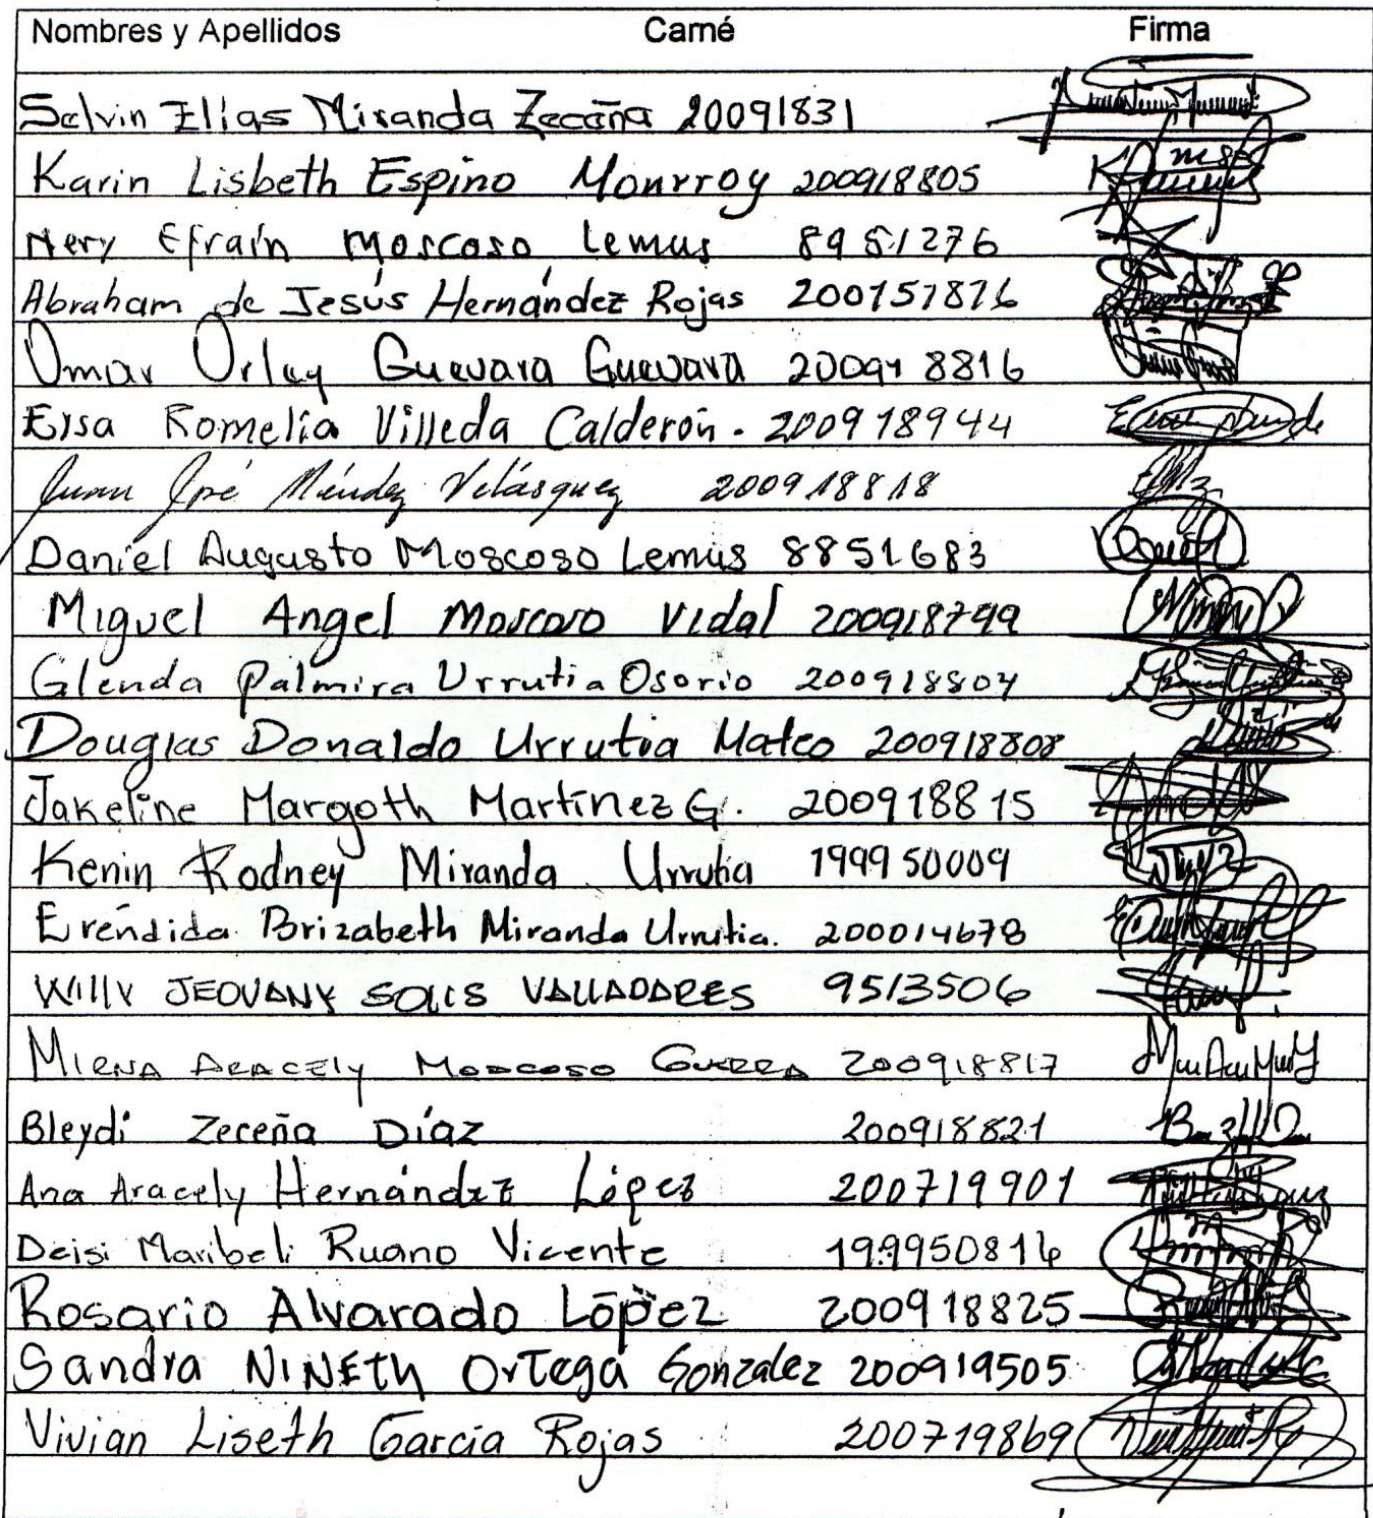 Nombres y Apellidos Carné Firma
Selvin Elías Miranda Zeceña 20091831
Karin Lisbeth Espino Monrroy 200918805
Nery Efraín Moscoso Lemus 8951276
Abraham de Jesús Hernández Rojas 200151816
Omar Orley Guevara Guevara 200918816
Elsa Romelia Villeda Calderón. 200918944
Juan José Méndez Velásquez 200918818
Daniel Augusto Moscoso Lemus 8851683
Miguel Angel Moscoso Vidal 200918799
Glenda Palmira Urrutia Osorio 200918804
Douglas Donaldo Urrutia Mateo 200918808
Jakeline Margoth Martínez G. 200918815
Kenin Rodney Miranda Urrutia 199950009
Eréndida Brizabeth Miranda Urrutia. 200014678
WILLY JEOVANY SOLIS VALLADARES 9513506
MIRNA ARACELY MOSCOSO GUERRA 200918817
Bleydi Zeceña Díaz 200918821
Ana Aracely Hernández López 200719901
Deisi Maribeli Ruano Vicente 199950816
Rosario Alvarado López 200918825
Sandra NINETh OrTega Gonzalez 200919505
Vivian Liseth García Rojas 200719869